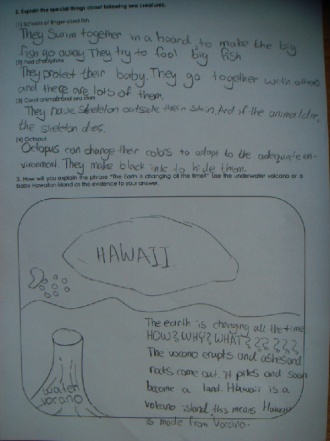 2. Explain the special things about following sea creatures.
(1) Schools of finger-sized fish
They Swim together in a hoard, to make the big
fish go away They try to fool big fish
(2)
They protect their baby. They go together with others
and there are lots of them.
(3) Coral animals and sea stars
They have skeleton outside their skin, And if the animal die,
the skeleton dies.
(4) Octopus
Octopus can change their colors to adapt to the adequate en-
vironment. They make black ink to hide them.
3. How will you explain the phrase "The Earth is changing all the time!" Use the underwater volcano or a
baby Hawaiian island as the evidence to your answer.
HAWAII
The earth is changing all the time
HOW? WHY? WHAT?????
The vocano erupts and ashes and
rocks came out. It piles and soon
become a land. Hawaii is a
volcano island, this means Hawaii
is made from Vocano.
water
vocano